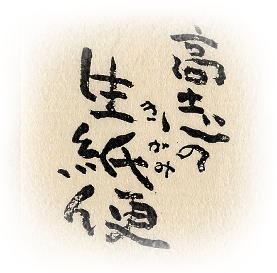 高志の
生紙便
きがみ